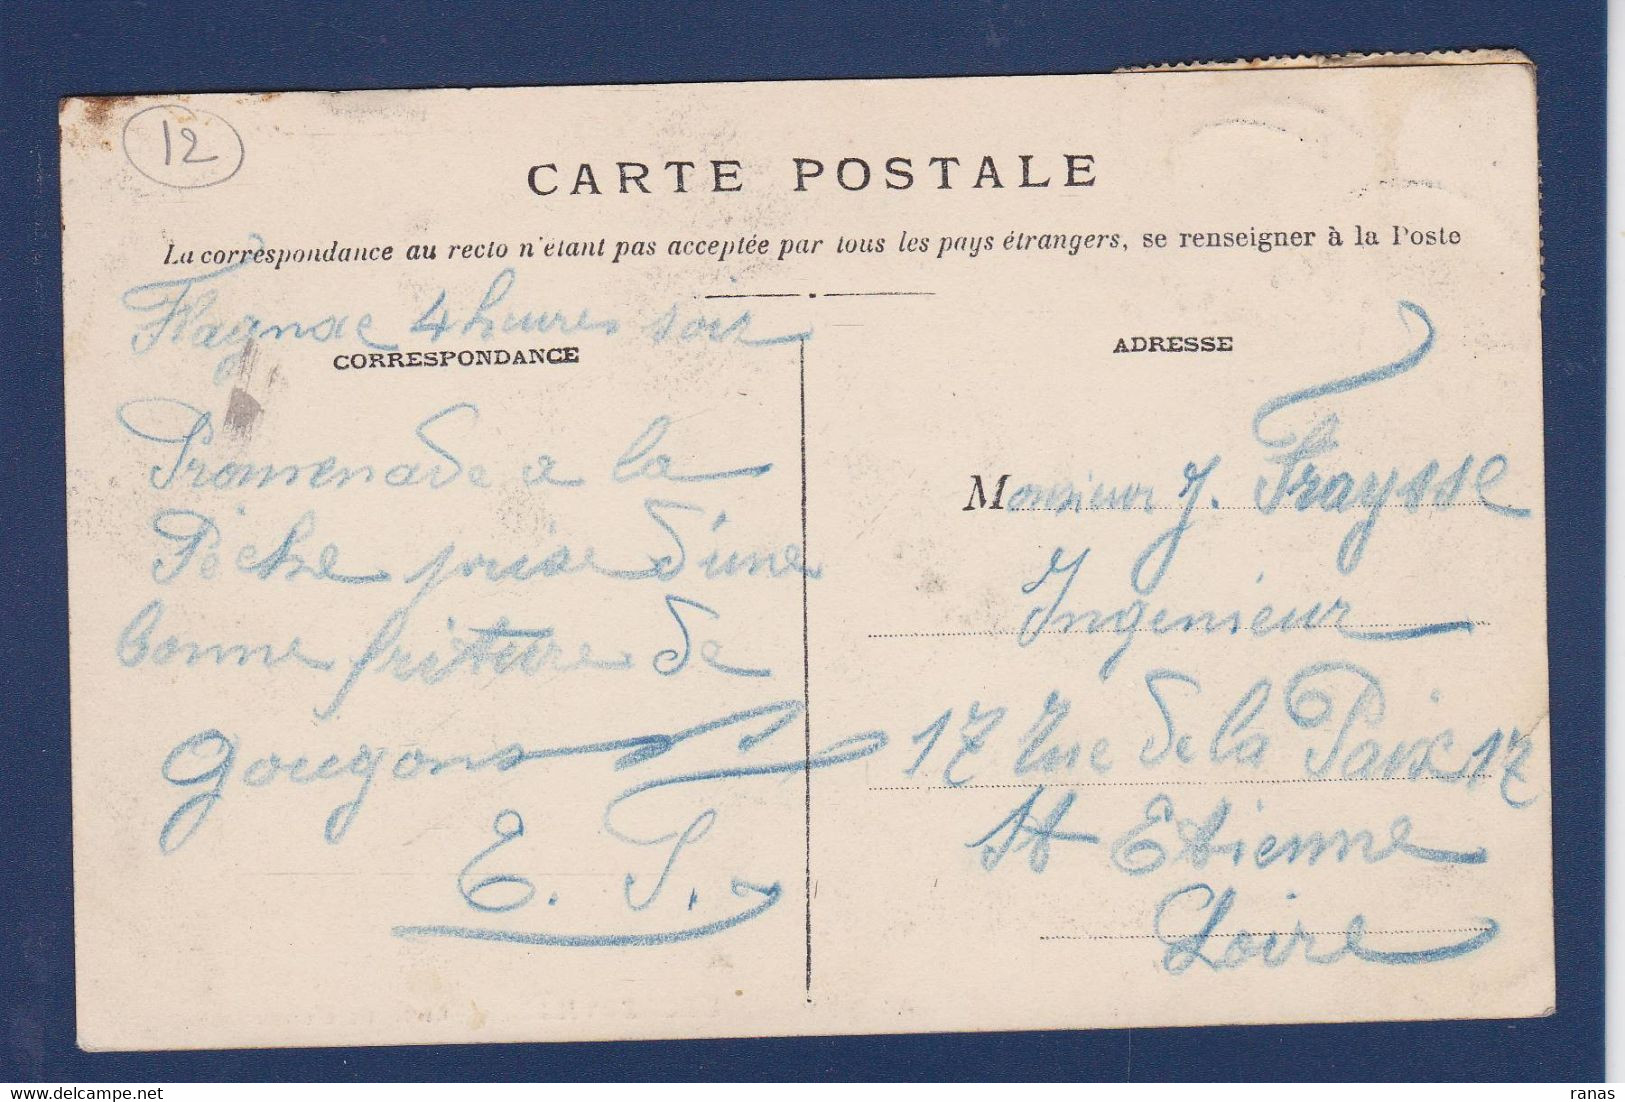 12
CARTE POSTALE
La correspondance au recto n'étant pas acceptée par tous les pays étrangers, se renseigner à la Poste
Flagnac 4 heures soir
CORRESPONDANCE
Promenade a la
Pêche prise d'une
bonne friture de
Gougons
E. P.
ADRESSE
Monsieur J. Fraysse
Ingenieur
17 Rue de la Paix 17
St Etienne
Loire
ranas